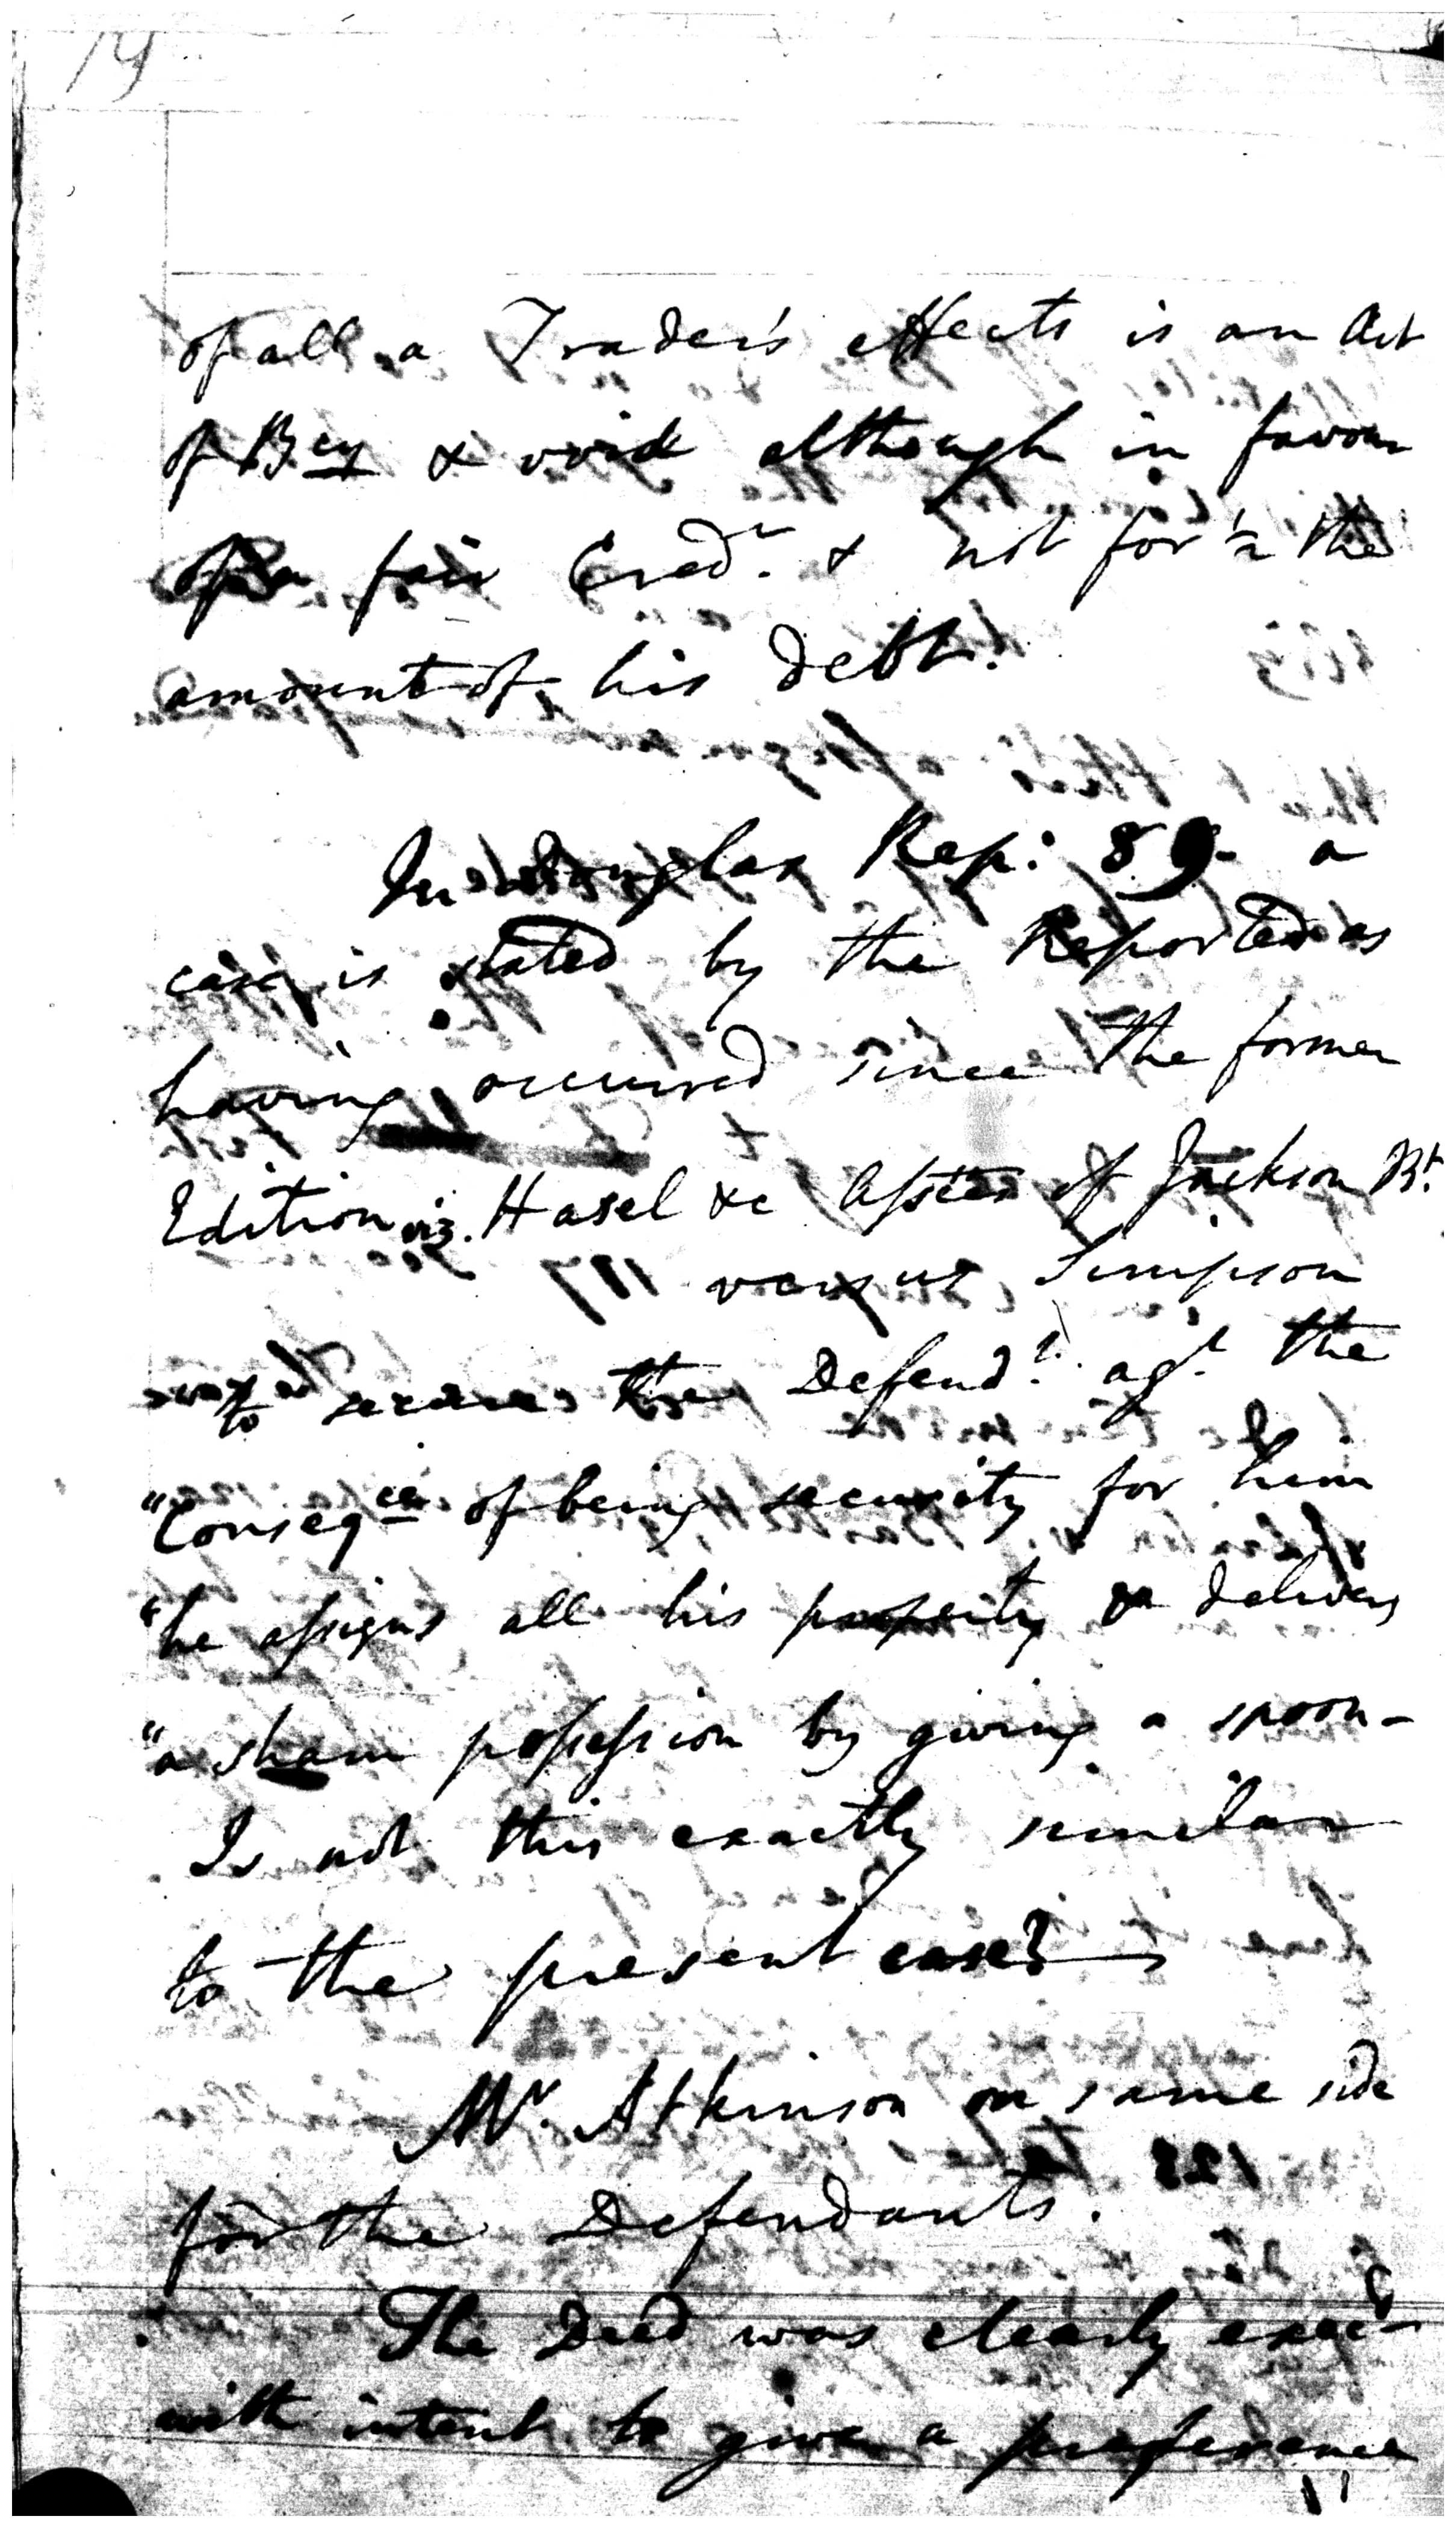 14
of all a Trader's effects is an Act
of Bcy & void although in favour
of a fair Credr. & not for ½ the
amount of his Debt.
In Douglas Rep: 89 a
case is stated by the Reporter as
having occurred since the former
Edition viz. Hasel &c Assees of Jackson Bt.
versus Simpson
to secure the Defendt. agt. the
"Conseqces of being security for him
"he assigns all his property & delivers
"a sham possession by giving a spoon-
Is not this exactly similar
to the present case?
Mr. Atkinson on same side
for the Defendants.
The Deed was clearly exec
with intent to give a preference